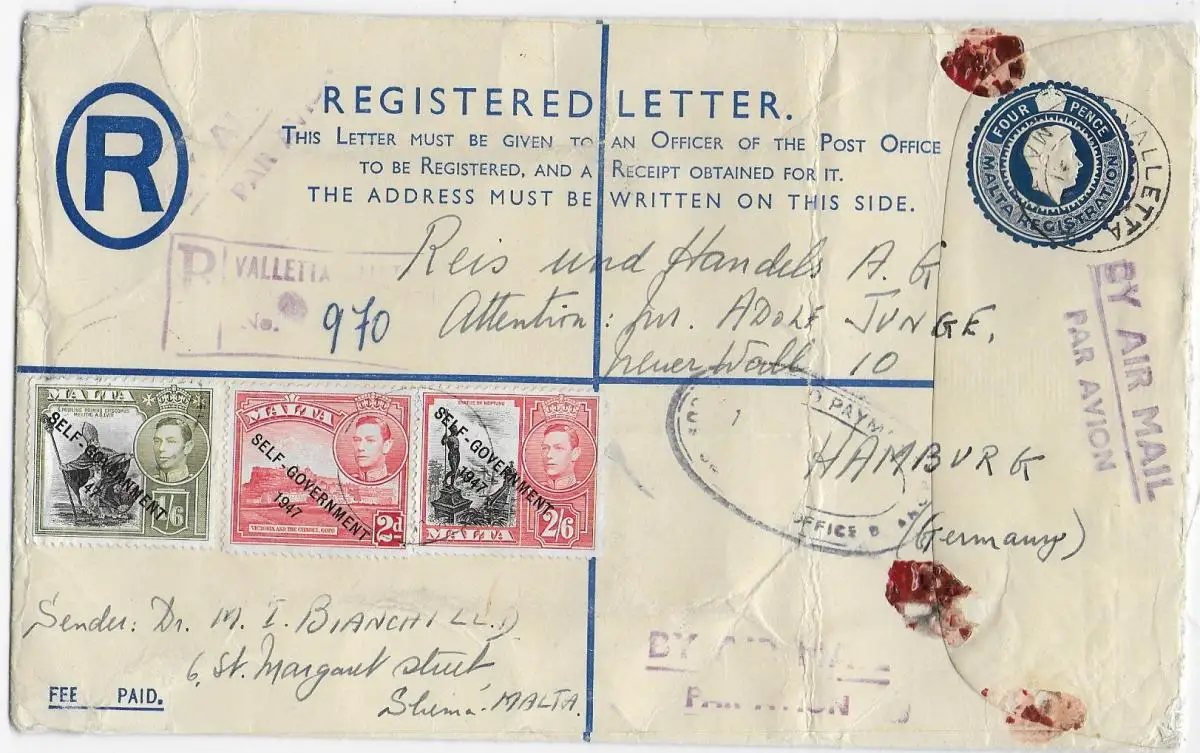 R
REGISTERED LETTER.
THIS LETTER MUST BE GIVEN TO AN OFFICER OF THE POST OFFICE
TO BE REGISTERED, AND A RECEIPT OBTAINED FOR IT.
THE ADDRESS MUST BE WRITTEN ON THIS SIDE.
FOUR PENCE
MALTA REGISTRATION
VALLETTA
PAR AVION
R VALLETTA
No. 970
Reis und Handels A. G
Attention: ADOLF JUNGE,
neuer Wall 10
HAMBURG
(Germany)
BY AIR MAIL
PAR AVION
PAYM
OFFICE
MALTA
SELF-GOVERNMENT
1947
1/6
MALTA
SELF-GOVERNMENT
1947
VICTORIA AND THE CITADEL, GOZO
2d
STATUE OF NEPTUNE
SELF-GOVERNMENT
1947
MALTA
2/6
Sender: Dr. M. I. BIANCHI LL.D
6, St. Margaret street
Sliema - MALTA.
FEE PAID.
BY AIR MAIL
PAR AVION